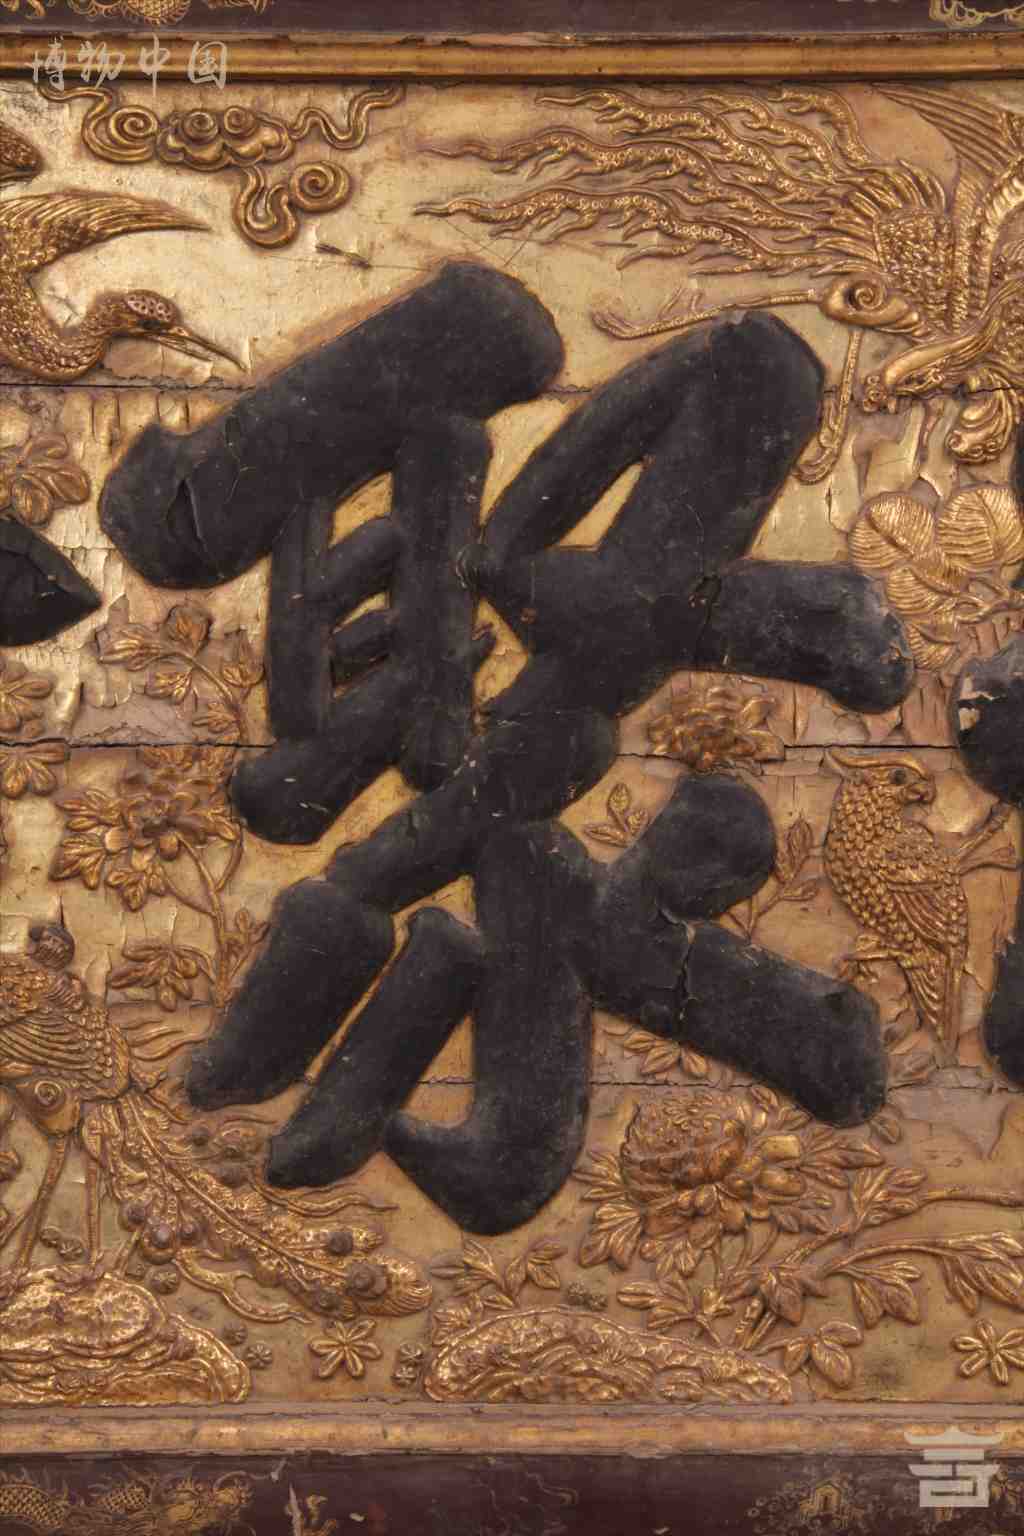 博物中国
聚